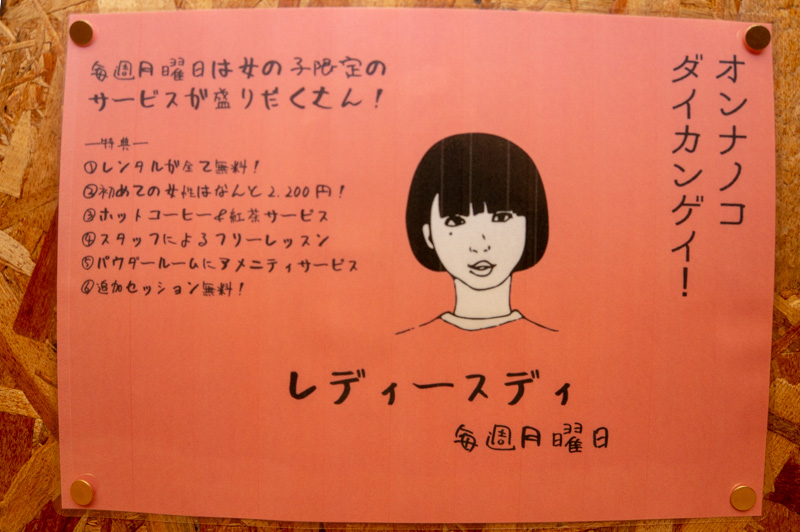 オンナノコ
ダイカンゲイ！
毎週月曜日は女の子限定の
サービスが盛りだくさん！
ー特典ー
①レンタルが全て無料！
②初めての女性はなんと2,200円！
③ホットコーヒー&紅茶サービス
④スタッフによるフリーレッスン
⑤パウダールームにアメニティサービス
⑥追加セッション無料！
レディースディ
毎週月曜日